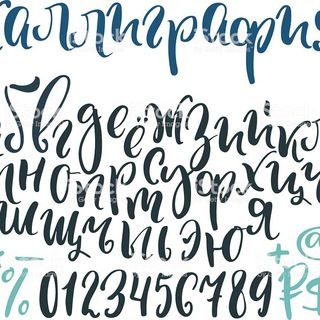 каллиграфия
абвгдеёжзийкл
мнопрстуфхцч
шщъыьэюя
%0123456789+@₽$